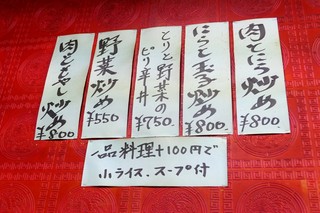 肉とにら炒め
¥800
にらと玉子炒め
¥800
とりと野菜の
ピリ辛丼
¥750
野菜炒め
¥550
肉ともやし炒め
¥800
一品料理+100円で
小ライス、スープ付